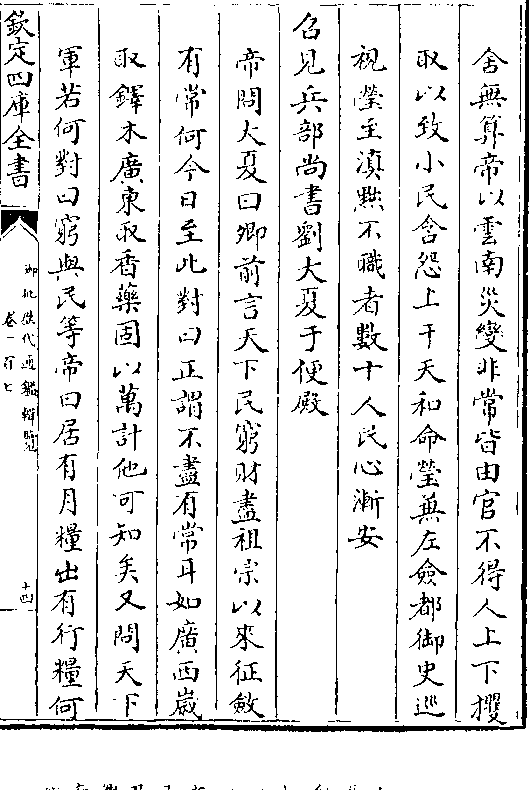 舍無算帝以雲南災變非常皆由官不得人上下攫
取以致小民含怨上干天和命瑩兼左僉都御史巡
視瑩至滇黜不職者數十人民心漸安
召見兵部尚書劉大夏于便殿
帝問大夏曰卿前言天下民窮財盡祖宗以來征斂
有常何今日至此對曰正謂不盡有常耳如廣西歲
取鐸木廣東取香藥固以萬計他可知矣又問天下
軍若何對曰窮與民等帝曰居有月糧出有行糧何
欽定四庫全書
御批歷代通鑑輯覽
卷一百七
十四